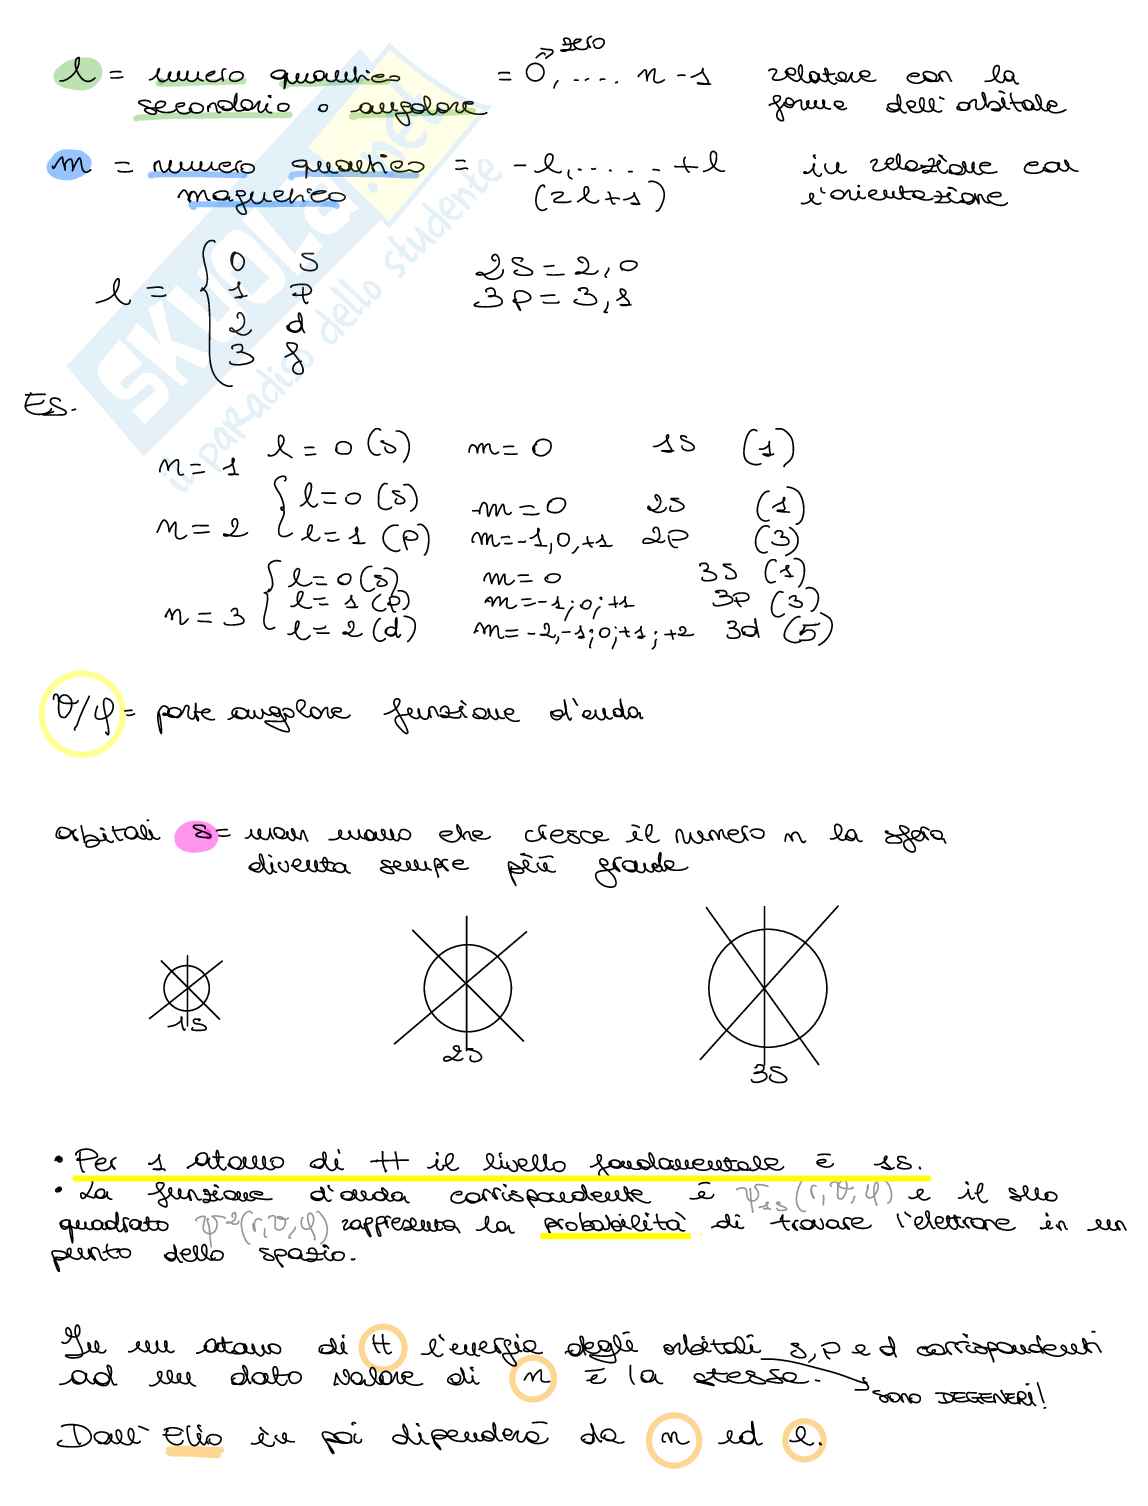 zero
l = numero quantico = 0, .... n-1 relatore con la
secondario o angolare forma dell'orbitale
m = numero quantico = -l, ..... +l in relazione con
magnetico (2l+1) l'orientazione
l = { 0 s
1 p
2 d
3 f
2s = 2,0
3p = 3,1
ES.
n = 1 l = 0 (s) m = 0 1s (1)
n = 2 { l = 0 (s) m = 0 2s (1)
l = 1 (p) m = -1,0,+1 2p (3)
n = 3 { l = 0 (s) m = 0 3s (1)
l = 1 (p) m = -1;0;+1 3p (3)
l = 2 (d) m = -2,-1;0;+1;+2 3d (5)
ϑ/φ = parte angolare funzione d'onda
orbitali s = man mano che cresce il numero n la sfera
diventa sempre più grande
1s
2s
3s
• Per 1 atomo di H il livello fondamentale è 1s.
• La funzione d'onda corrispondente è ψ1s (r, ϑ, φ) e il suo
quadrato ψ² (r, ϑ, φ) rappresenta la probabilità di trovare l'elettrone in un
punto dello spazio.
In un atomo di H l'energia degli orbitali s, p e d corrispondenti
ad un dato valore di n è la stessa.
SONO DEGENERI!
Dall'Elio in poi dipenderà da n ed l.
SKUOLA.net
il paradiso dello studente